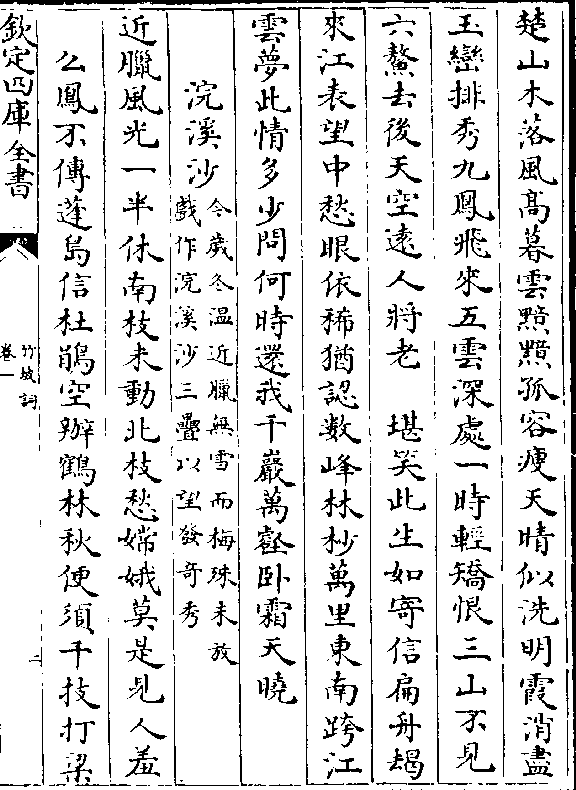 楚山木落風髙暮雲黯黯孤容瘦天晴似洗明霞消盡
玉巒排秀九鳳飛來五雲深處一時輕矯恨三山不見
六鰲去後天空逺人將老　堪笑此生如寄信扁舟朅
來江表望中愁眼依稀猶認數峰林杪萬里東南跨江
雲夢此情多少問何時還我千巖萬壑卧霜天曉
浣溪沙
今歲冬温近臘無雪而梅殊未放
戲作浣溪沙三疊以望發竒秀
近臘風光一半休南枝未動北枝愁嫦娥莫是見人羞
么鳳不傳蓬島信杜鵑空辦鶴林秋便須千技打梁
欽定四庫全書
竹坡詞
卷一
二